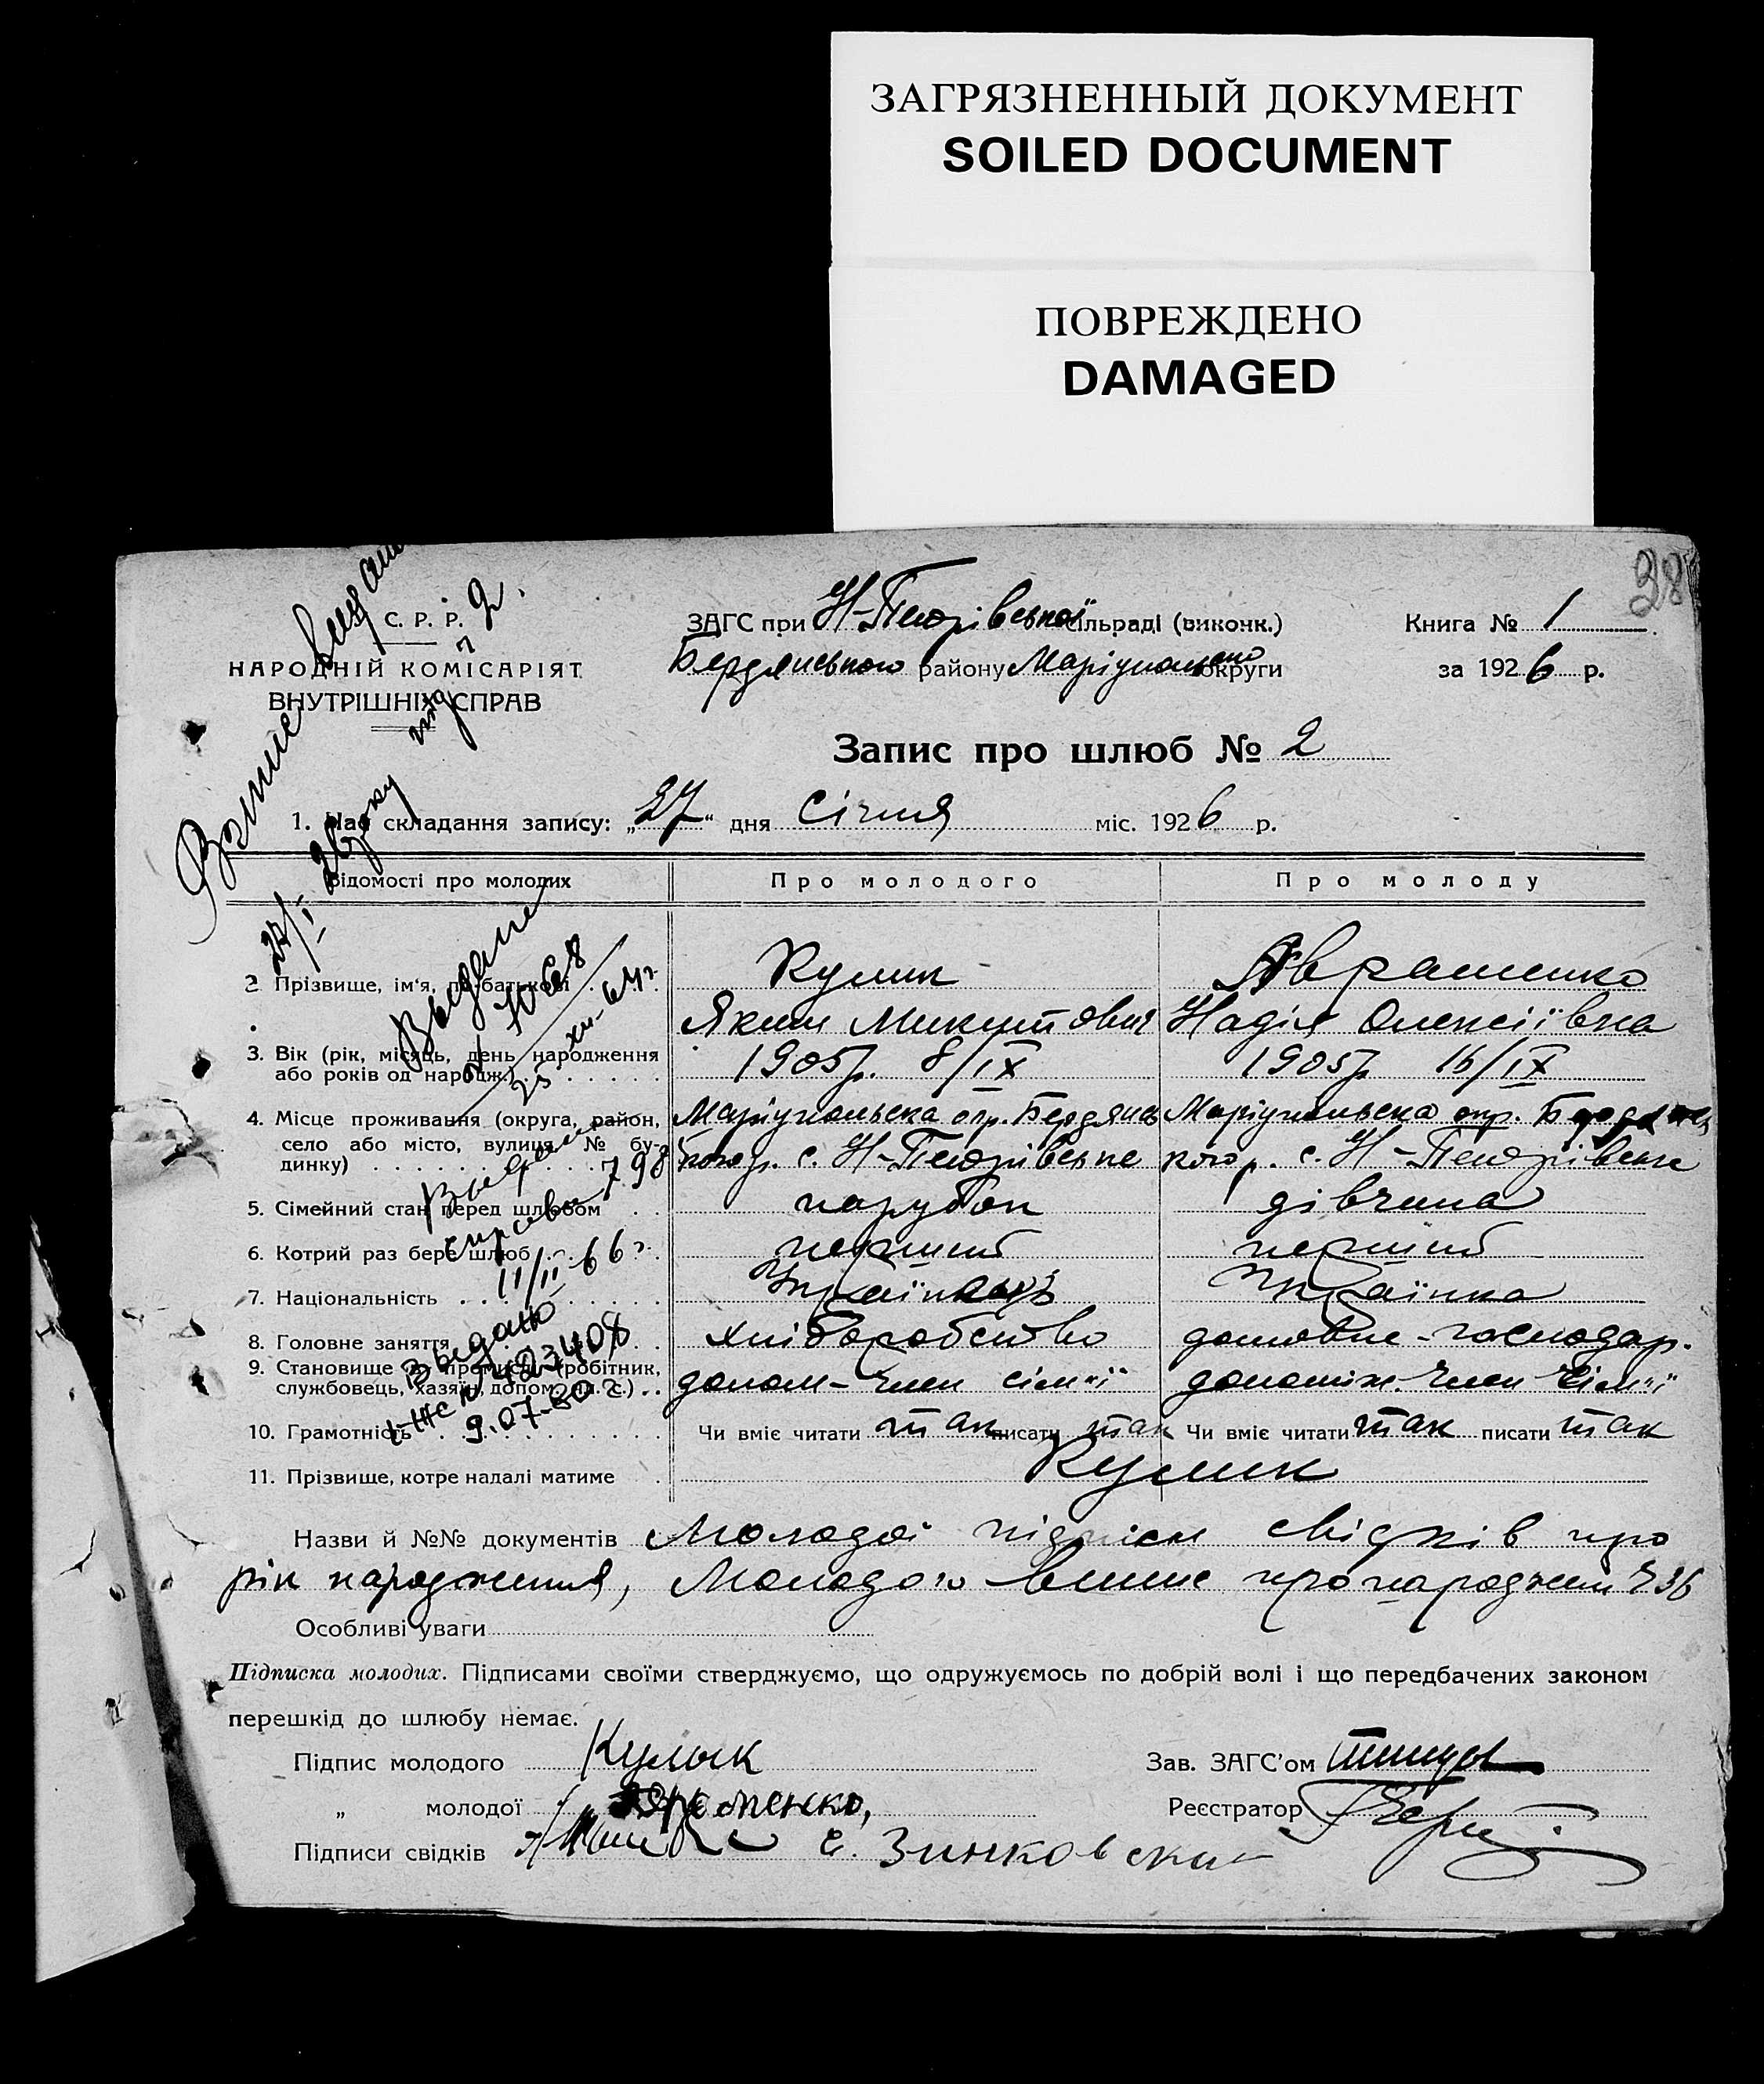 ЗАГРЯЗНЕННЫЙ ДОКУМЕНТ
SOILED DOCUMENT
ПОВРЕЖДЕНО
DAMAGED
38
С. Р. Р.
НАРОДНІЙ КОМІСАРІЯТ
ВНУТРІШНІХ СПРАВ
ЗАГС при Н-Петрівської сільраді (виконк.)
Бердянського району Маріупольсько округи
Книга № 1
за 1926 р.
Запис про шлюб № 2
1. Час складання запису: „27" дня Січня міс. 1926 р.
Відомості про молодих Про молодого Про молоду
2 Прізвище, ім'я, по-батькові Кулик Авраменко
Яким Микитович Надія Олексіївна
3. Вік (рік, місяць, день народження 1905р. 8/IX 1905р 16/IX
або років од народж.)
4. Місце проживання (округа, район, Маріупольська окр. Бердянсь Маріупольська окр. Бердянсь
село або місто, вулиця, № бу- кого р. с. Н-Петрівське кого р. с. Н-Петрівське
динку)
5. Сімейний стан перед шлюбом парубок дівчина
6. Котрий раз бере шлюб перший перший
7. Національність Українець Українка
8. Головне заняття хліборобство домашнє-господар.
9. Становище в промислі (робітник, допом-член сім"ї допоміж. член сім"ї
службовець, хазяїн, допом. чл. с.)
10. Грамотність Чи вміє читати так писати так Чи вміє читати так писати так
11. Прізвище, котре надалі матиме Кулик
Назви й №№ документів Молодої підписи свідків про
рік народження, Молодого випис про народжен 36
Особливі уваги
Підписка молодих. Підписами своїми стверджуємо, що одружуємось по добрій волі і що передбачених законом
перешкід до шлюбу немає.
Підпис молодого Кулык Зав. ЗАГС'ом
„ молодої Реєстратор
Підписи свідків Е. Зинковски
Випис
27/I 26 року
Выдано
25 XII-64г.
Выдана
справка 798
11/II-66г.
Выдано
423408
9.07-80г.